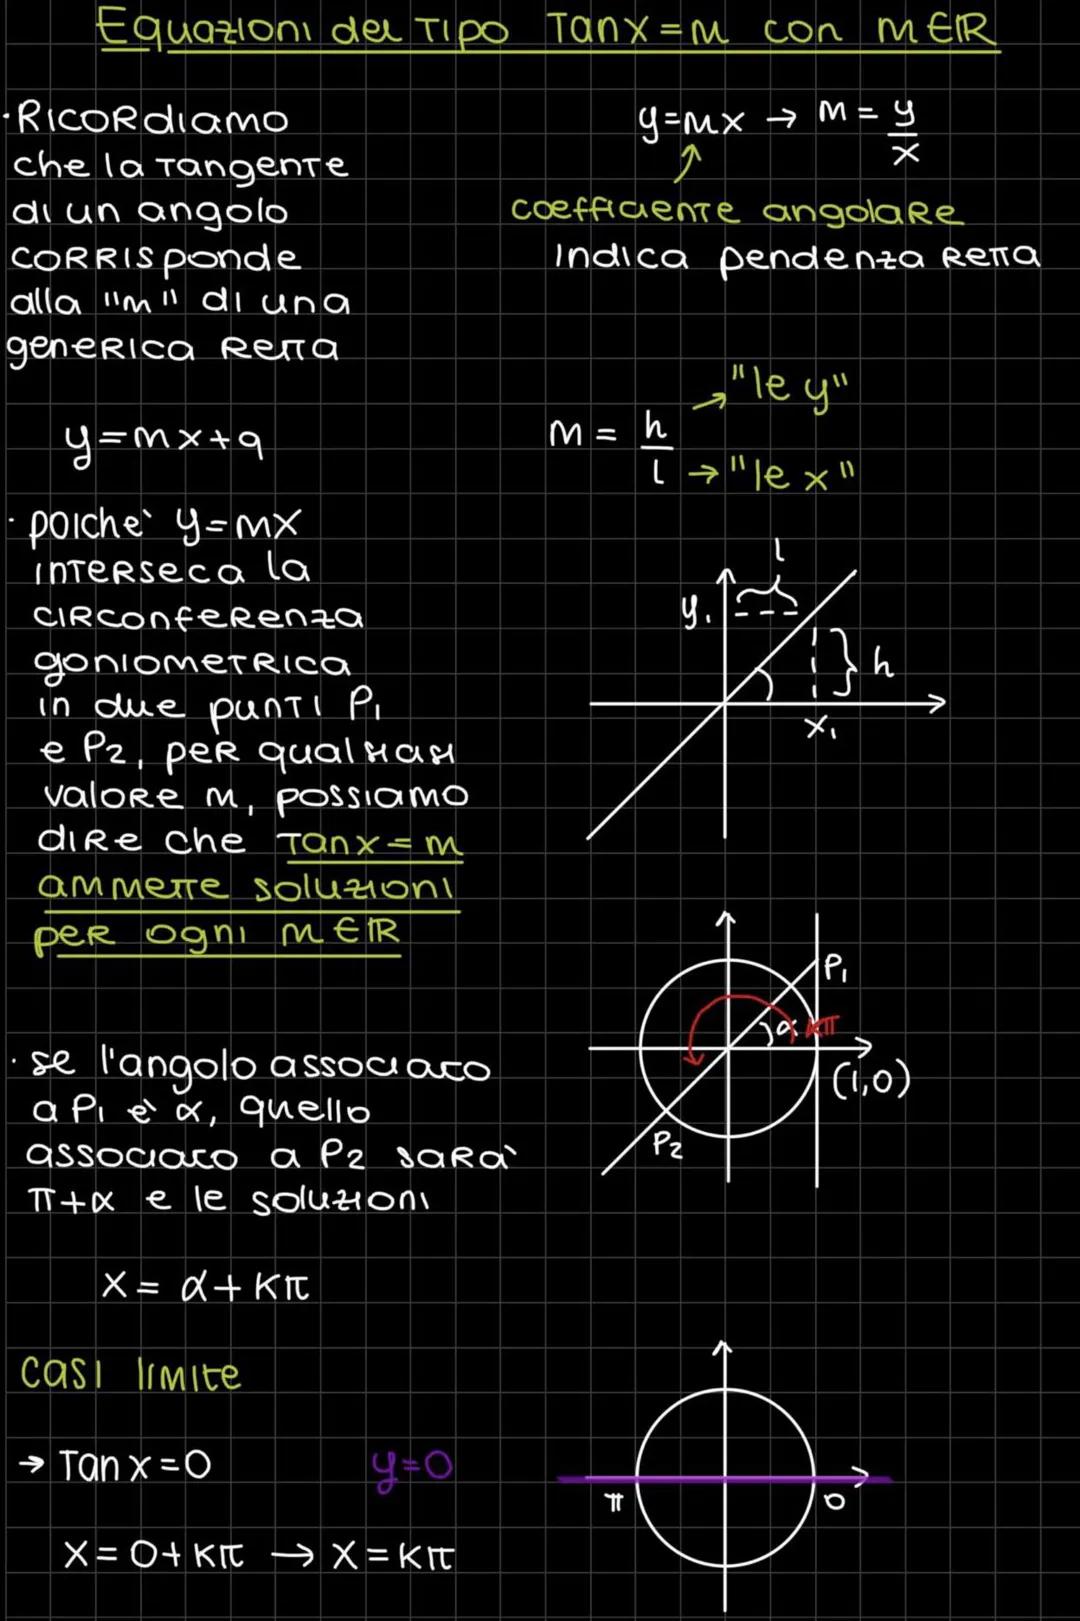 Equazioni del tipo Tanx=m con m∈ℝ
·Ricordiamo
che la tangente
di un angolo
corrisponde
alla "m" di una
generica retta
y=mx+q
y=mx → m=y/x
↑
coefficiente angolare
indica pendenza retta
m = h/l
→ "le y"
→ "le x"
· poichè y=mx
interseca la
circonferenza
goniometrica
in due punti P₁
e P₂, per qualsiasi
valore m, possiamo
dire che Tanx=m
ammette soluzioni
per ogni m∈ℝ
l
y₁
h
x₁
· se l'angolo associato
a P₁ è α, quello
associato a P₂ sarà
π+α e le soluzioni
x = α+kπ
P₁
α
kπ
(1,0)
P₂
casi limite
→ Tan x=0
y=0
x=0+kπ → x=kπ
π
0